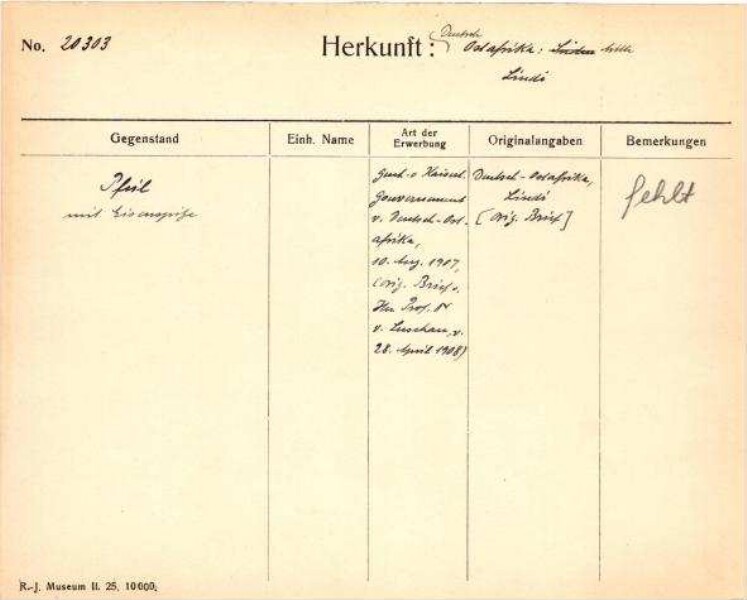 No. 20303
Herkunft: Deutsch
Ostafrika:
Lindi
Gegenstand
Einh. Name
Art der
Erwerbung
Originalangaben
Bemerkungen
Pfeil
mit Eisenspitze
Kaiserl.
Gouvernement
v. Deutsch-Ost-
afrika,
10. Aug. 1907,
(Orig. Brief v.
Hrn Prof. Dr
v. Luschan, v.
28. April 1908)
Deutsch-Ostafrika,
Lindi
[Orig. Brief]
fehlt
R.-J. Museum II. 25. 10000.